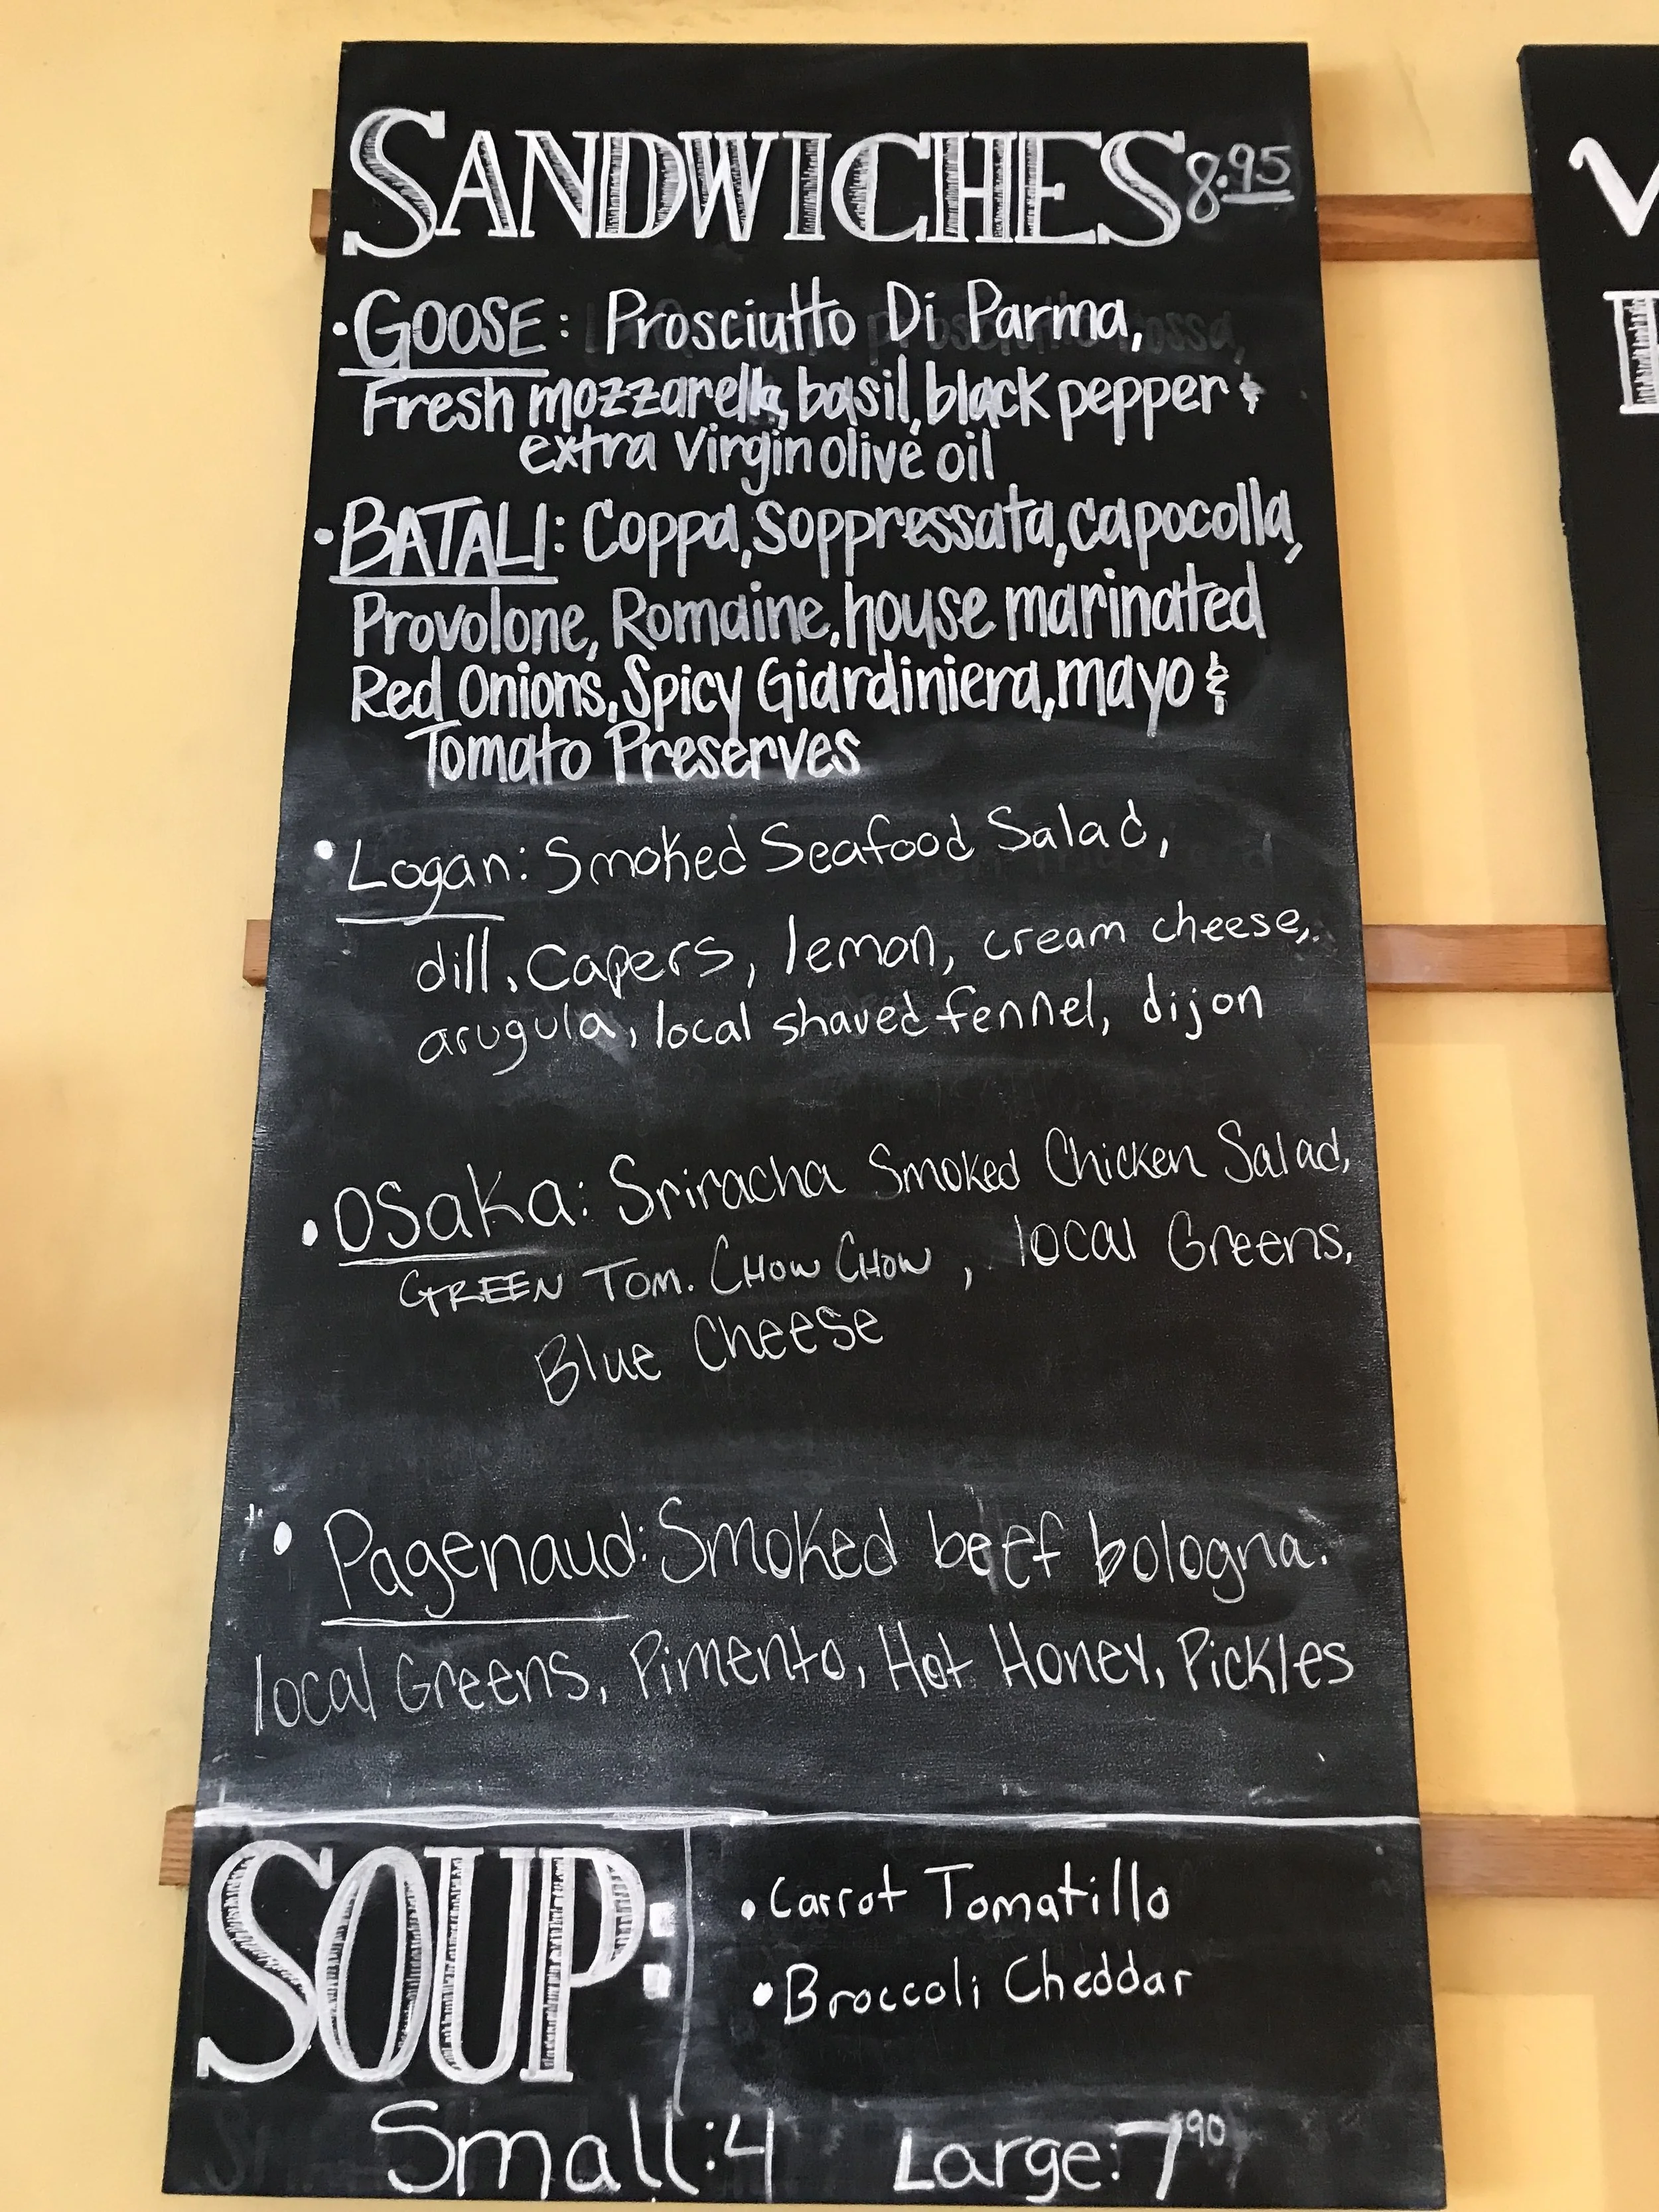 SANDWICHES 8.95
• GOOSE: Prosciutto Di Parma,
Fresh mozzarella, basil, black pepper &
extra virgin olive oil
• BATALI: Coppa, Soppressata, capocolla,
Provolone, Romaine, house marinated
Red Onions, Spicy Giardiniera, mayo &
Tomato Preserves
• Logan: Smoked Seafood Salad,
dill, Capers, lemon, cream cheese,
arugula, local shaved fennel, dijon
• OSaka: Sriracha Smoked Chicken Salad,
GREEN TOM. CHOW CHOW, local Greens,
Blue Cheese
• Pagenaud: Smoked beef bologna.
local Greens, Pimento, Hot Honey, Pickles
SOUP:
• Carrot Tomatillo
• Broccoli Cheddar
Small: 4 Large: 7 90